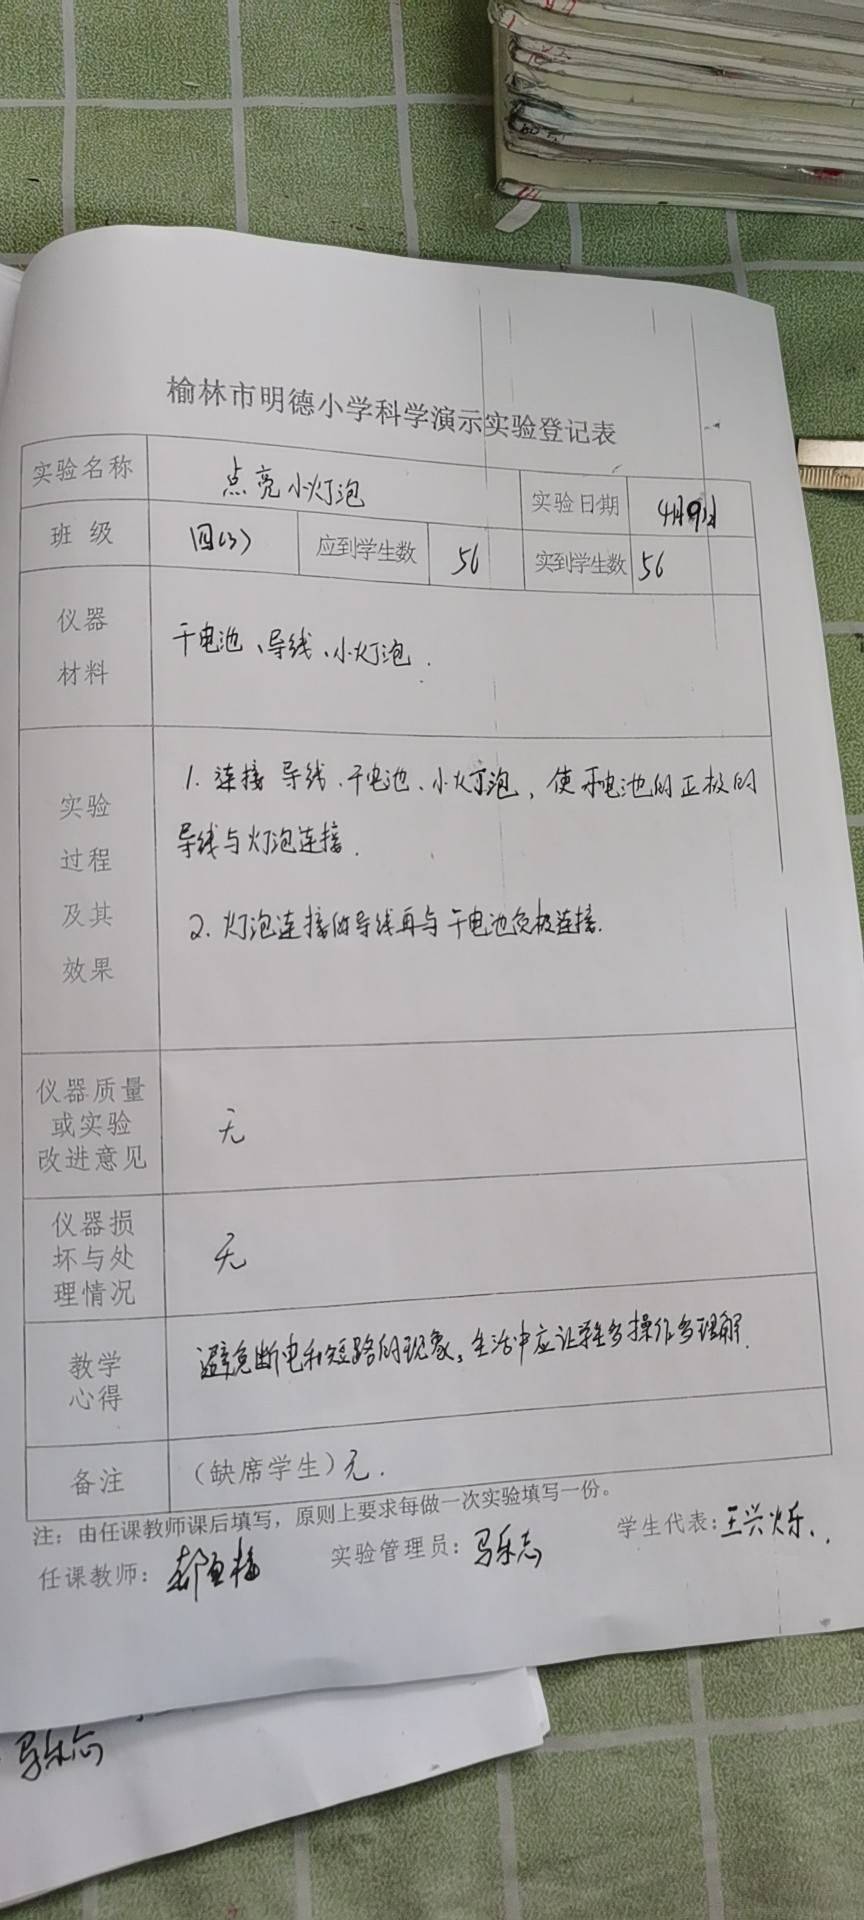 榆林市明德小学科学演示实验登记表
实验名称 点亮小灯泡 实验日期 4月9日
班级 四(3) 应到学生数 56 实到学生数 56
仪器
材料
干电池、导线、小灯泡.
实验
过程
及其
效果
1. 连接导线、干电池、小灯泡，使干电池的正极的
导线与灯泡连接.
2. 灯泡连接的导线再与干电池负极连接.
仪器质量
或实验
改进意见
无
仪器损
坏与处
理情况
无
教学
心得
避免断电和短路的现象，生活中应让学生多操作多理解.
备注 (缺席学生)无.
注：由任课教师课后填写，原则上要求每做一次实验填写一份。
任课教师： 实验管理员：马乐志 学生代表：王兴烁..
马乐志